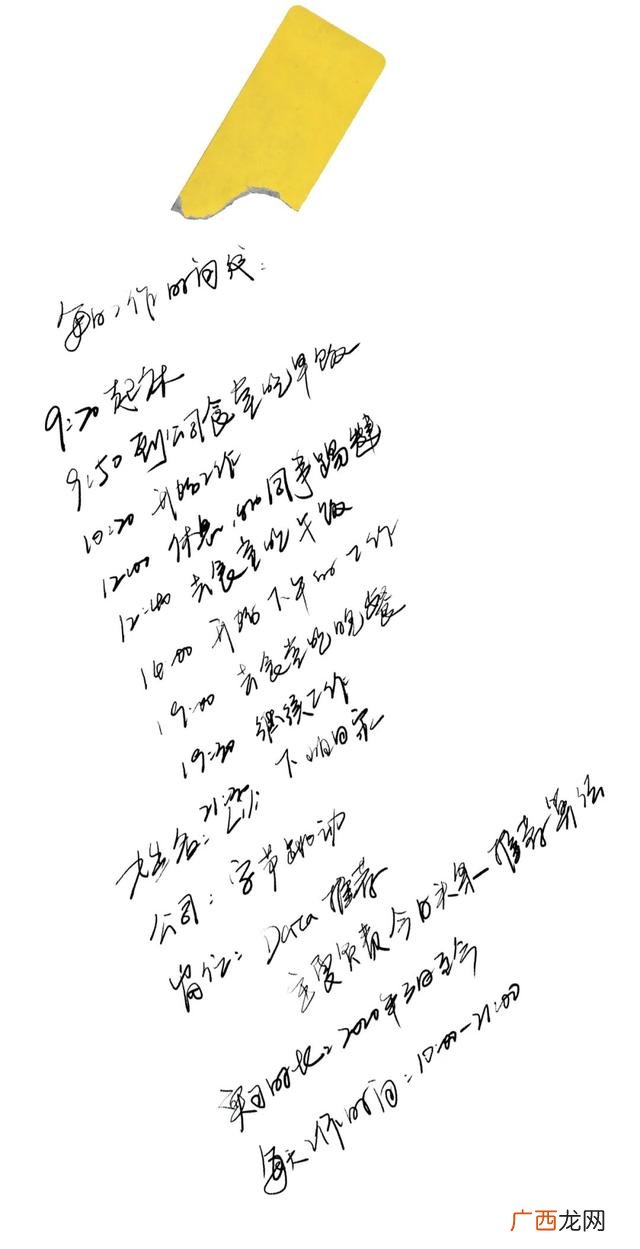 每日工作时间线:
9:30 起床
9:50 到公司食堂吃早饭
10:20 开始工作
12:00 休息,和同事踢毽
12:40 去食堂吃午饭
14:00 开始下午的工作
19:00 去食堂吃晚餐
19:30 继续工作
21:30 下班回家
姓名: Lili
公司: 字节跳动
岗位: Data 推荐
主要负责今日头条推荐算法
实习时长: 2020年3月至今
每天工作时间: 10:00-21:00
广西龙网